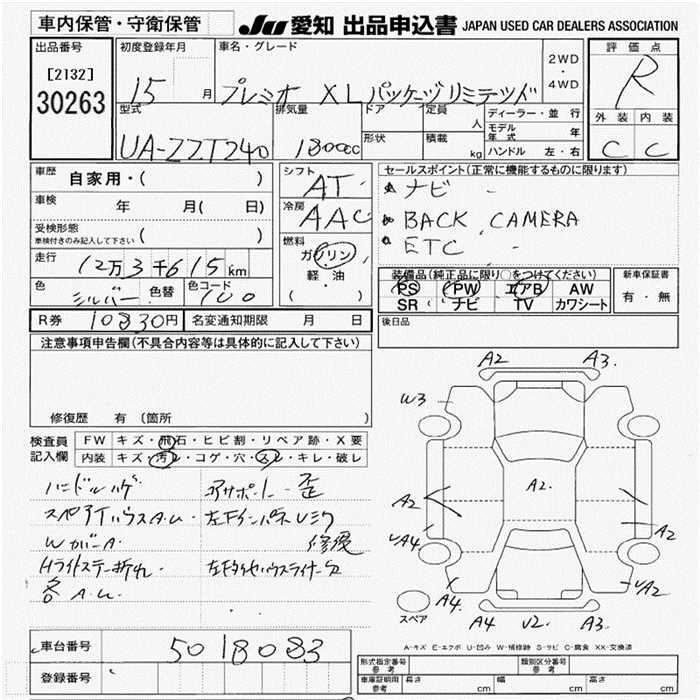 車内保管・守衛保管
JU 愛知 出品申込書 JAPAN USED CAR DEALERS ASSOCIATION
出品番号
[2132]
30263
初度登録年月
15 月
車名・グレード
プレミオ XLパッケージリミテッド
2WD
・
4WD
評価点
R
外装 内装
C C
型式
UA-ZZT240
排気量
1800cc
ドア
形状
定員 人
積載 kg
ディーラー・並行
モデル年式 年
ハンドル 左・右
車歴
自家用・( )
車検 年 月( 日)
受検形態
車検付きのみ記入して下さい ( )
走行
12万3千615km
色
シルバー
色替
色コード
1C0
シフト
AT
冷房
AAC
燃料
ガソリン
軽・油
( )
セールスポイント(正常に機能するものに限ります)
ナビ
BACK CAMERA
ETC
装備品(純正品に限り○をつけてください)
PS PW エアB AW
SR ナビ TV カワシート
新車保証書
有・無
R券 10830円 名変通知期限 月 日
後日品
注意事項申告欄(不具合内容等は具体的に記入して下さい)
修復歴 有 (箇所 )
検査員
記入欄
FW キズ・飛石・ヒビ割・リペア跡・X要
内装 キズ・汚レ・コゲ・穴・スレ・キレ・破レ
ハンドルハゲ
コアサポート-歪
スペアタイヤハウスA.U
左Fインパネレミク
WカバーA
修復
Hライトステー折れ
各A.U
A2 A3
W3
A2.
A2
A2
UA4
UA2
A4
A4 U2. A3
スペア
A-キズ E-エクボ U-凹み W-補修跡 S-サビ C-腐食 XX-交換済
車台番号 5018083
登録番号
形式指定番号
参考
類別区分番号
参考
車庫証明用
参考
長さ cm 幅 cm 高さ cm